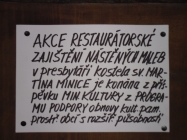 AKCE RESTAURÁTORSKÉ
ZAJIŠTĚNÍ NÁSTĚNÝCH MALEB
v presbyteři kostela sv. MAR-
TINA MINICE je konána z pří-
pěvku MIN. KULTURY z PROGRA-
MU PODPORY obnovy kult. pam.
prostř. obcí s rozšíř. působností